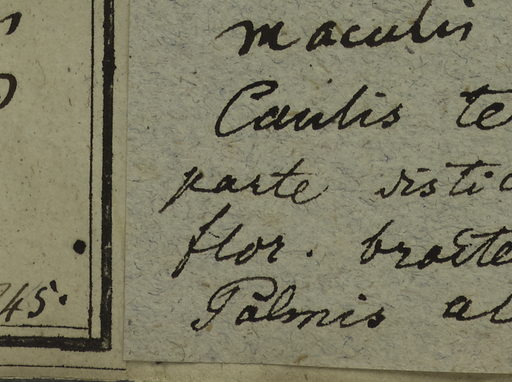 maculis
Caulis te
parte distic
flor. bracte
Palmis al
45.